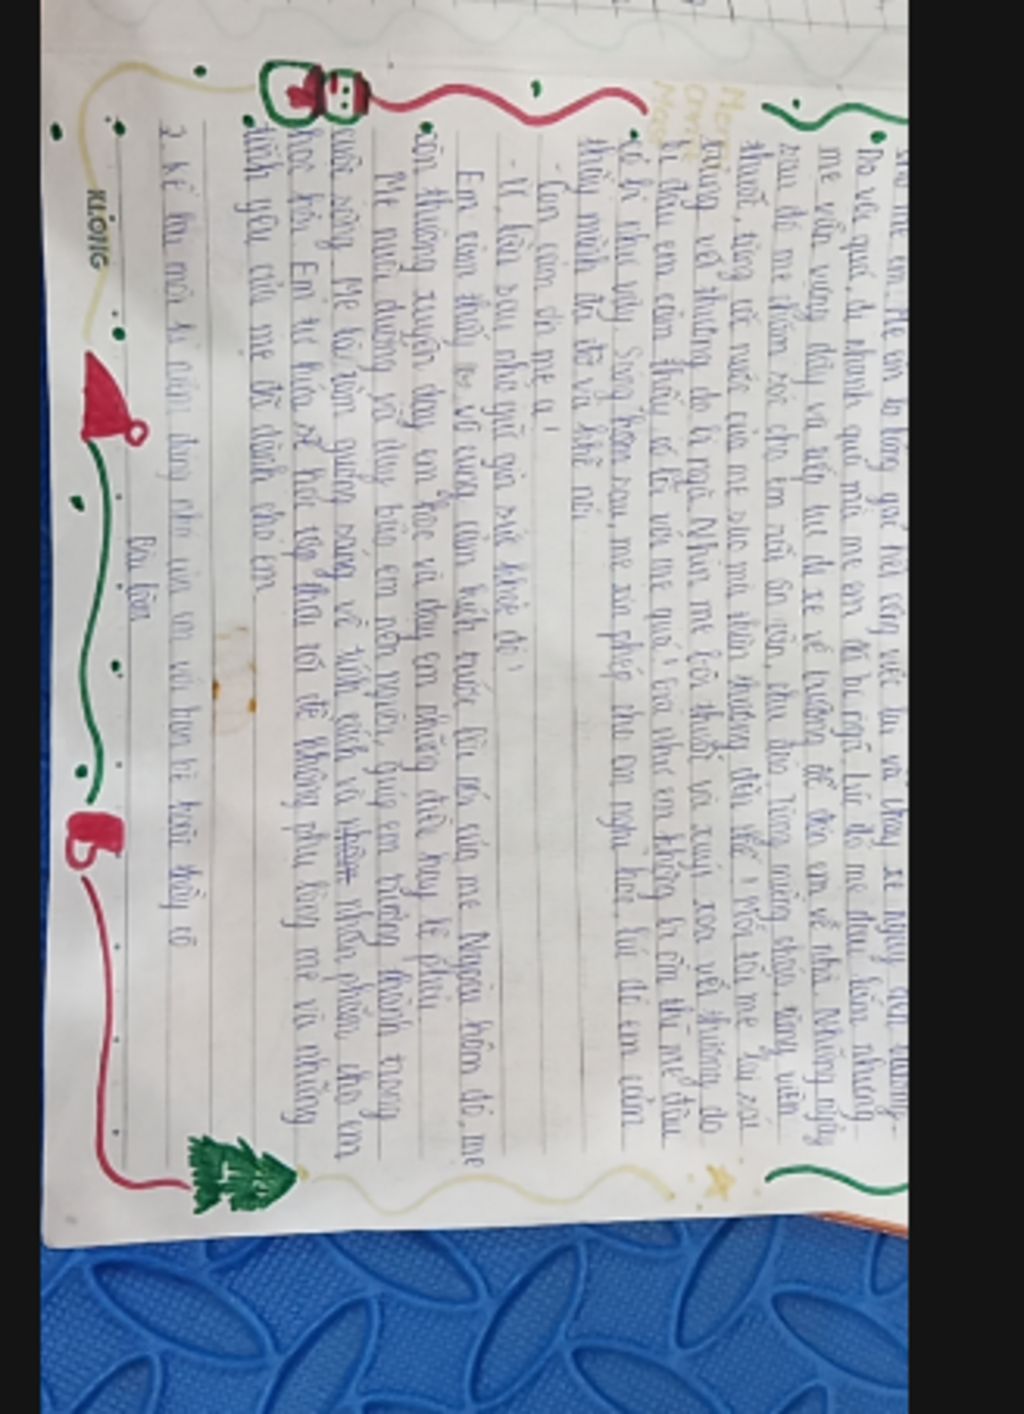 cho mẹ em. Mẹ em
Do vội quá, đi nhanh quá mà mẹ em đã bị ngã. Lúc đó mẹ đau lắm nhưng
mẹ vẫn vùng dậy và tiếp tục đi xe về trường để đón em về nhà. Những ngày
sau đó mẹ chăm sóc cho em rất ân cần, chu đáo. Từng miếng cháo, từng viên
thuốc, từng cốc nước của mẹ sao mà thân thương đến thế! Mỗi tối mẹ lại
vết thương do bị ngã. Nhìn mẹ bôi thuốc và xuýt xoa vết thương do
bị đau em cảm thấy có lỗi với mẹ quá! Giá như em không bị ốm thì mẹ đâu
có bị như vậy. Sáng hôm sau, mẹ xin phép cho em nghỉ học. Lúc đó em cảm
thấy mình đã đỡ và khẽ nói
- Con cảm ơn mẹ ạ!
- Ừ, lần sau nhớ giữ gìn sức khỏe đó!
Em cảm thấy vô cùng cảm kích trước của mẹ. Ngoài hôm đó, mẹ
còn thường xuyên dạy em học và dạy em những điều hay lẽ phải.
Mẹ nuôi dưỡng và dạy bảo em nên người, giúp em trưởng thành trong
cuộc sống. Mẹ là tấm gương sáng về tính cách và nhân phẩm cho em
học tập. Em tự hứa sẽ học tập thật tốt để không phụ lòng mẹ và những
tình yêu của mẹ đã dành cho em
2. Kể lại một kỉ niệm đáng nhớ của em với bạn bè hoặc thầy cô
Bài làm
Merry
KLONG